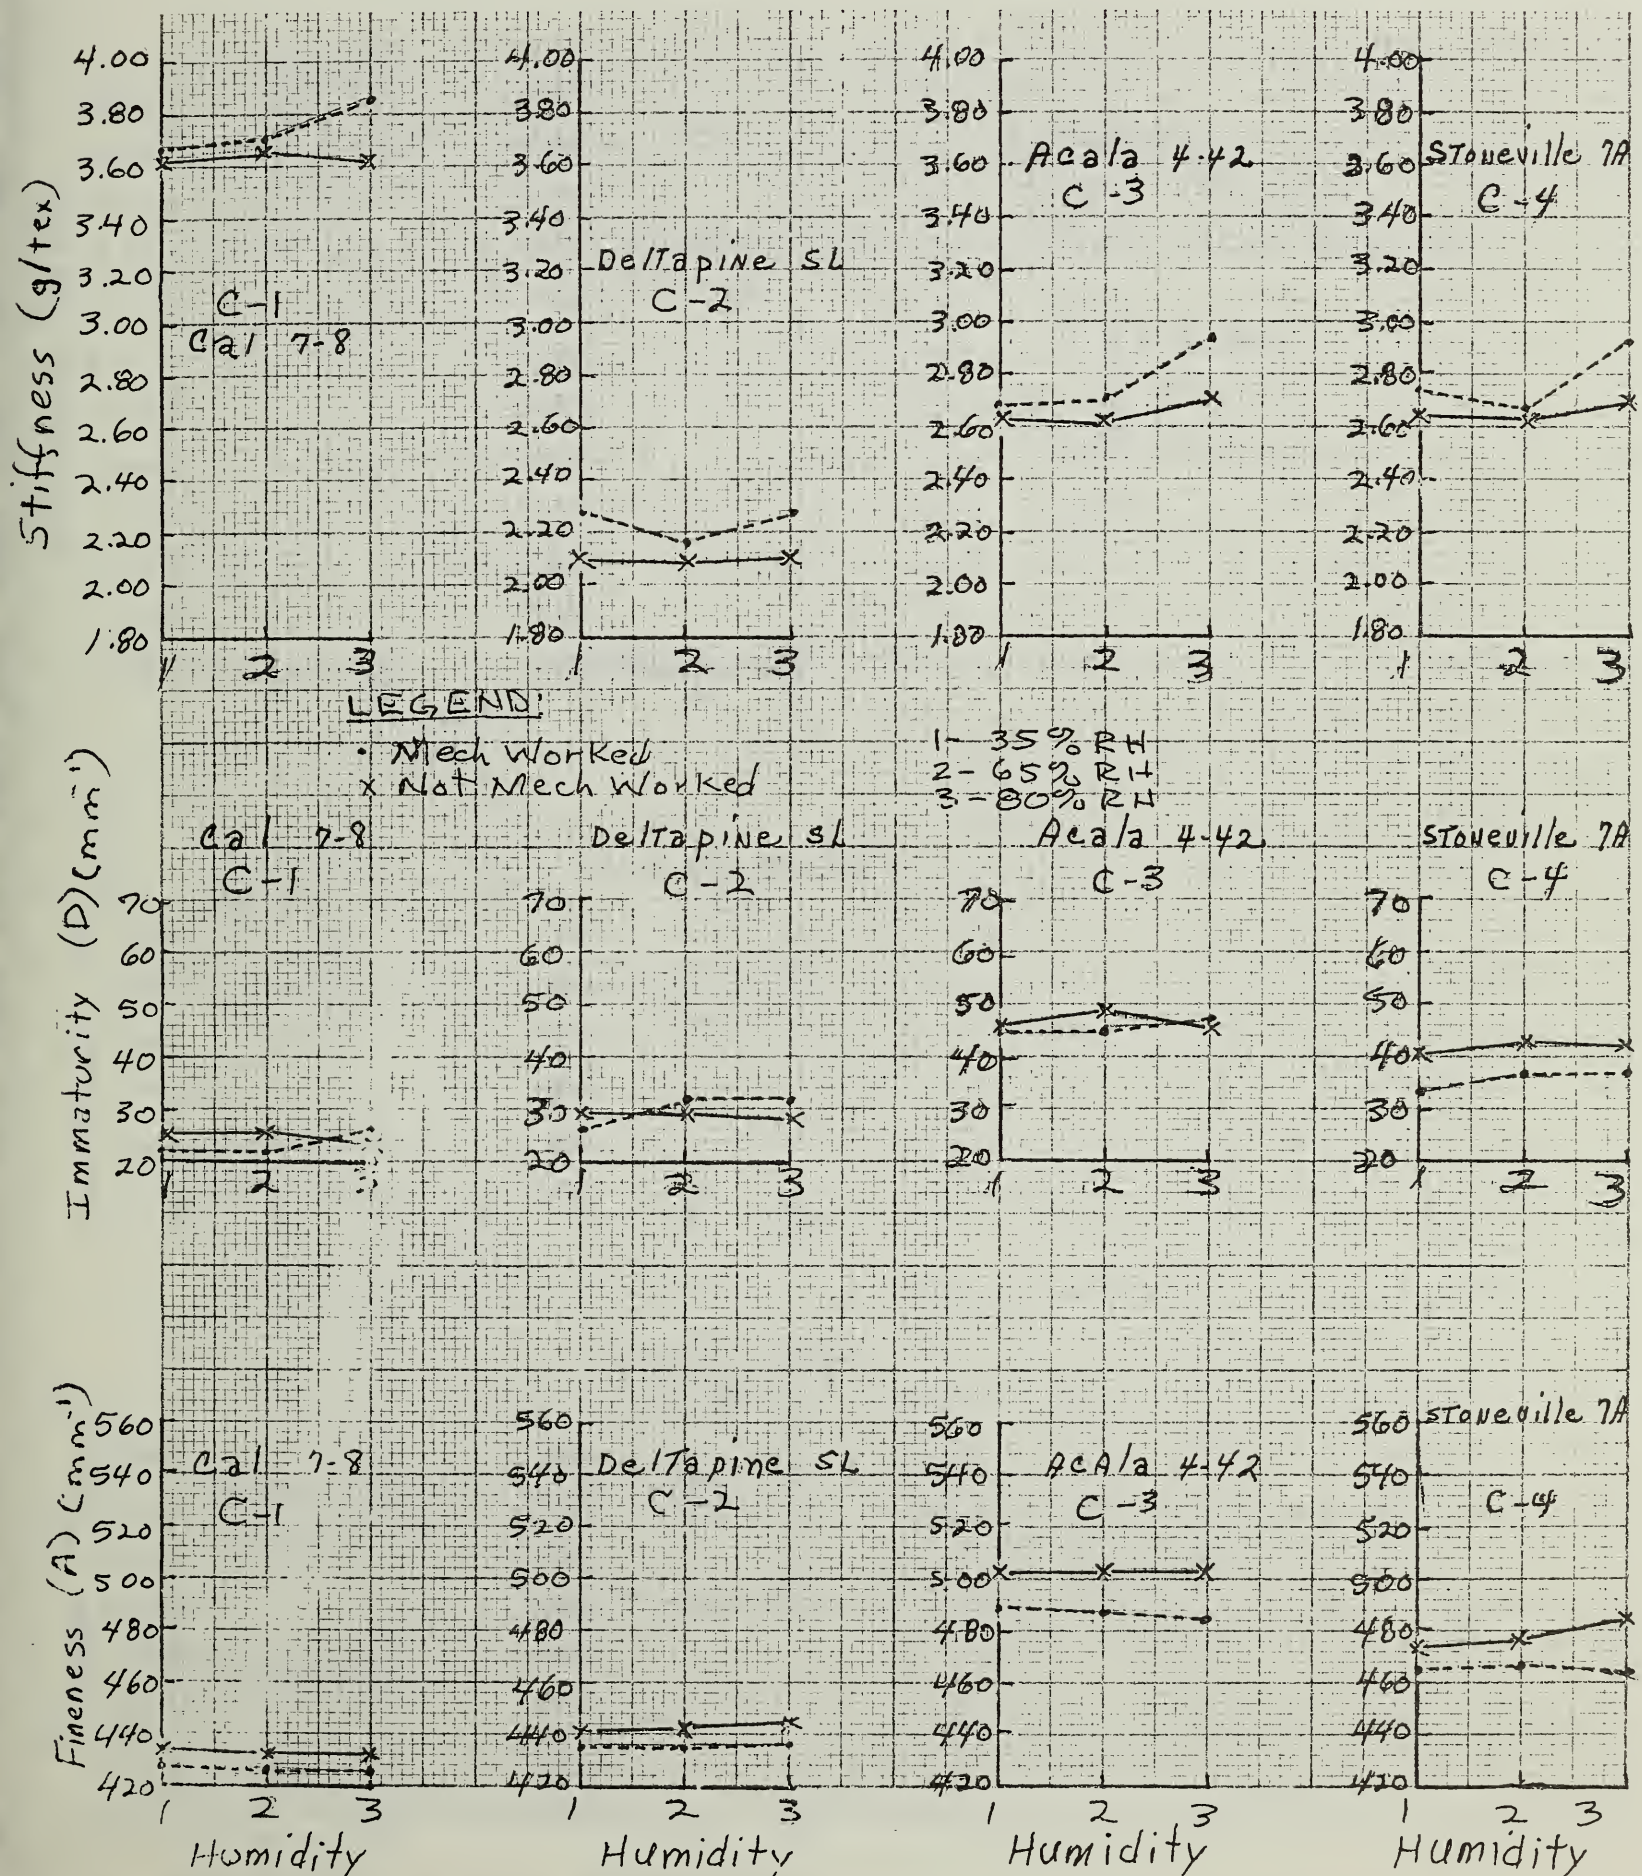 Stiffness (g/tex)
4.00
3.80
3.60
3.40
3.20
3.00
2.80
2.60
2.40
2.20
2.00
1.80
C-1
Cal 7-8
1 2 3
4.00
3.80
3.60
3.40
3.20
3.00
2.80
2.60
2.40
2.20
2.00
1.80
Deltapine SL
C-2
1 2 3
4.00
3.80
3.60
3.40
3.20
3.00
2.80
2.60
2.40
2.20
2.00
1.80
Acala 4-42
C-3
1 2 3
4.00
3.80
3.60
3.40
3.20
3.00
2.80
2.60
2.40
2.20
2.00
1.80
Stoneville 7A
C-4
1 2 3
LEGEND:
• Mech Worked
x Not Mech Worked
1- 35% RH
2- 65% RH
3- 80% RH
Immaturity (D)(mm⁻¹)
Cal 7-8
C-1
70
60
50
40
30
20
1 2
Deltapine SL
C-2
70
60
50
40
30
20
1 2 3
Acala 4-42
C-3
70
60
50
40
30
20
1 2 3
Stoneville 7A
C-4
70
60
50
40
30
20
1 2 3
Fineness (A)(mm⁻¹)
560
540
520
500
480
460
440
420
Cal 7-8
C-1
1 2 3
Humidity
560
540
520
500
480
460
440
420
Deltapine SL
C-2
1 2 3
Humidity
560
540
520
500
480
460
440
420
AcAla 4-42
C-3
1 2 3
Humidity
560
540
520
500
480
460
440
420
Stoneville 7A
C-4
1 2 3
Humidity